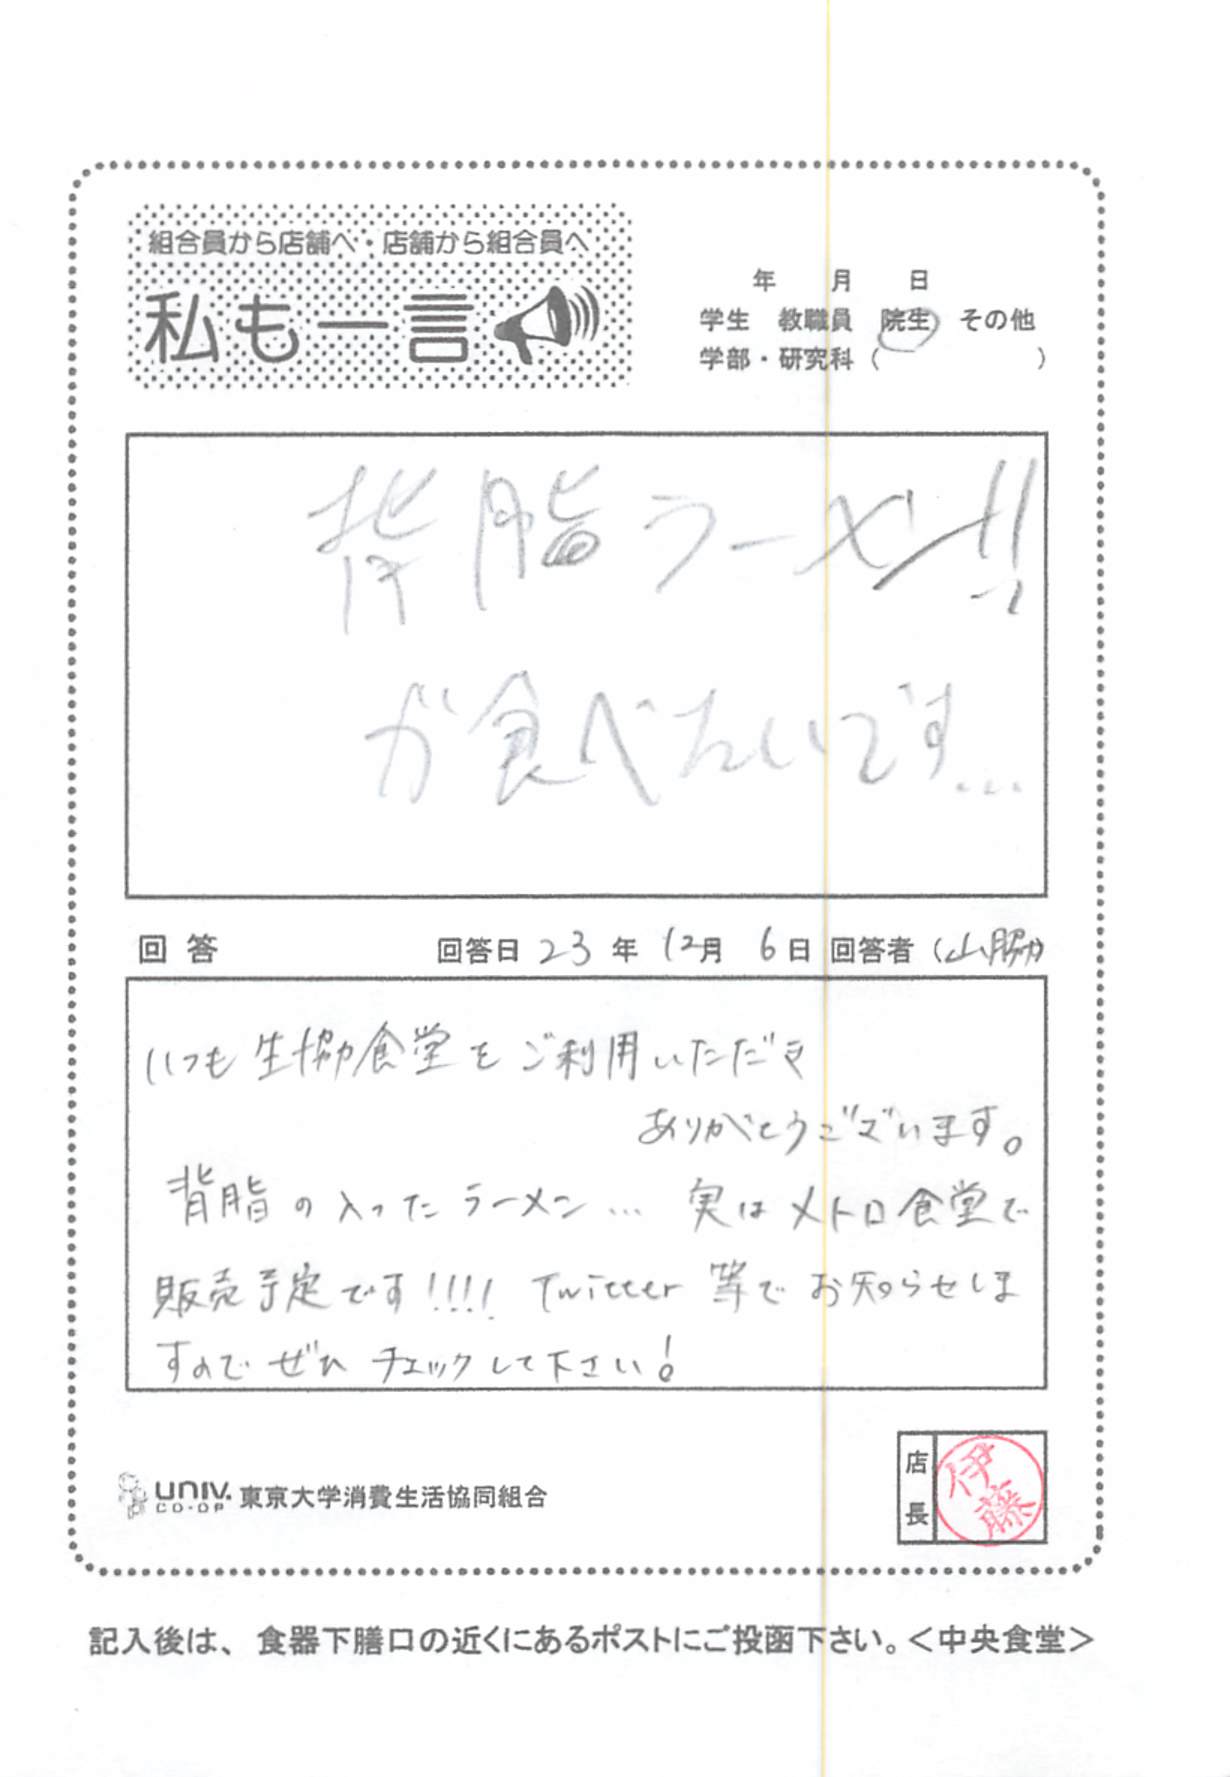 組合員から店舗へ・店舗から組合員へ
私も一言
年 月 日
学生 教職員 院生 その他
学部・研究科（ ）
背脂ラーメン!!
が食べたいです…
回答 回答日 23年 12月 6日 回答者（山脇）
いつも生協食堂をご利用いただき
ありがとうございます。
背脂の入ったラーメン… 実はメトロ食堂で
販売予定です!!!! Twitter 等でお知らせしま
すのでぜひチェックして下さい!
店長 伊藤
UNIV. CO-OP 東京大学消費生活協同組合
記入後は、食器下膳口の近くにあるポストにご投函下さい。＜中央食堂＞